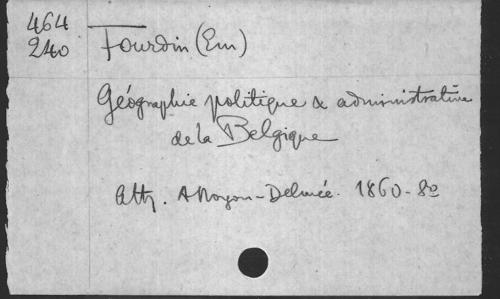 464
240
Fourdin (Em)
Géographie politique & administrative
de la Belgique
Ath. Noyon-Delmée. 1860-8º